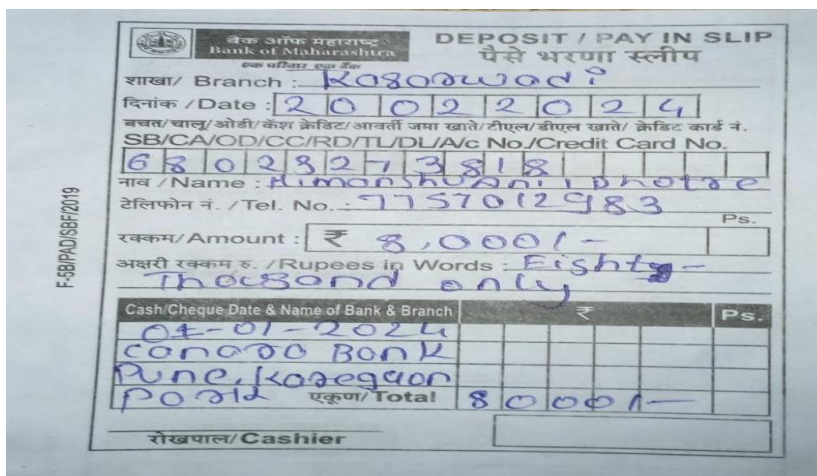 बैंक ऑफ महाराष्ट्र
Bank of Maharashtra
एक परिवार एक बैंक
DEPOSIT / PAY IN SLIP
पैसे भरणा स्लीप
शाखा/ Branch :
दिनांक /Date : 20 02 2024
बचत/चालू/ओडी/कॅश क्रेडिट/आवर्ती जमा खाते/टीएल/डीएल खाते/ क्रेडिट कार्ड नं.
SB/CA/OD/CC/RD/TL/DL/A/c No./Credit Card No.
68023273818
नाव /Name : Himanshu Anil Dhotre
टेलिफोन नं. /Tel. No. : 7757012983
Ps.
रक्कम/Amount : ₹ 8,000/-
अक्षरी रक्कम रु. /Rupees in Words : Eighty-
Thousand only
Cash/Cheque Date & Name of Bank & Branch ₹ Ps.
01-2024
Canara Bank
Pune, Koregaon
Park एकूण/Total 80001-
रोखपाल/Cashier
F-5B/PAD/SBF/2019